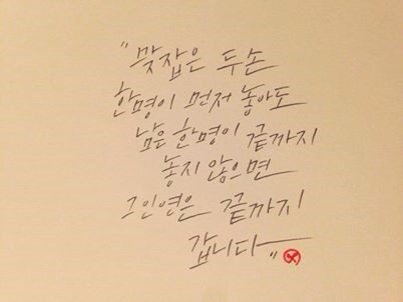 "맞잡은 두손
한명이 먼저 놓아도
남은 한명이 끝까지
놓지 않으면
그인연은 끝까지
갑니다"